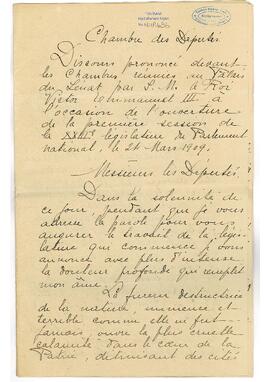 Chambre des Députés
Discours prononcé devant
les Chambres réunies au Palais
du Sénat par S. M. le Roi
Victor Emmanuel III à
l'occasion de l'ouverture
de la première session de
la XXIIIe législature du Parlement
national, le 24 Mars 1909.
Messieurs les Députés
Dans la solennité de
ce jour, pendant que je vous
adresse la parole pour vous
augurer le travail de la légis-
lature qui commence, je vous
annonce avec plus d'intense
la douleur profonde qui remplit
mon âme.
La fureur destructrice
de la nature, immense et
terrible comme elle ne fut
jamais, ouvre la plus cruelle
calamité dans le cœur de la
Patrie, détruisant des cités